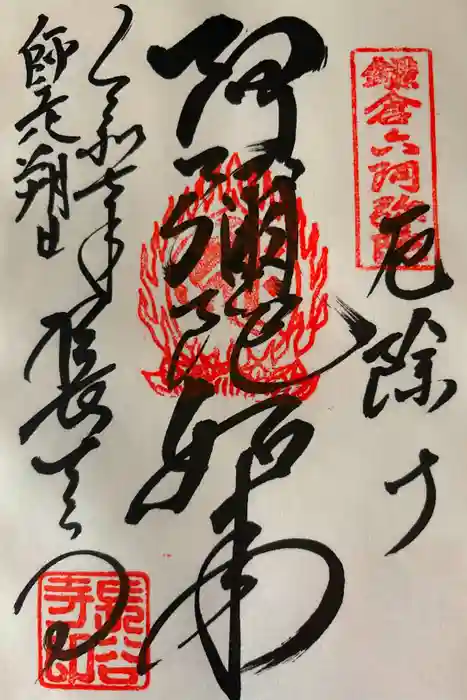 鎌倉六阿弥陀
厄除け
阿彌陀如来
令和七年
師走朔日
長谷寺
長谷
寺印